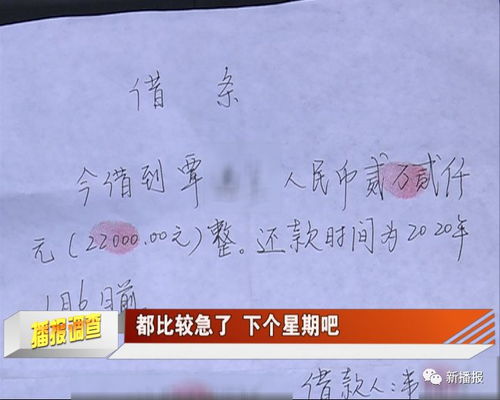 借 条
今借到覃 人民币贰万贰仟
元(22000.00元)整。还款时间为2020年
1月6日前
播报调查
都比较急了 下个星期吧
新播报
借款人:韦